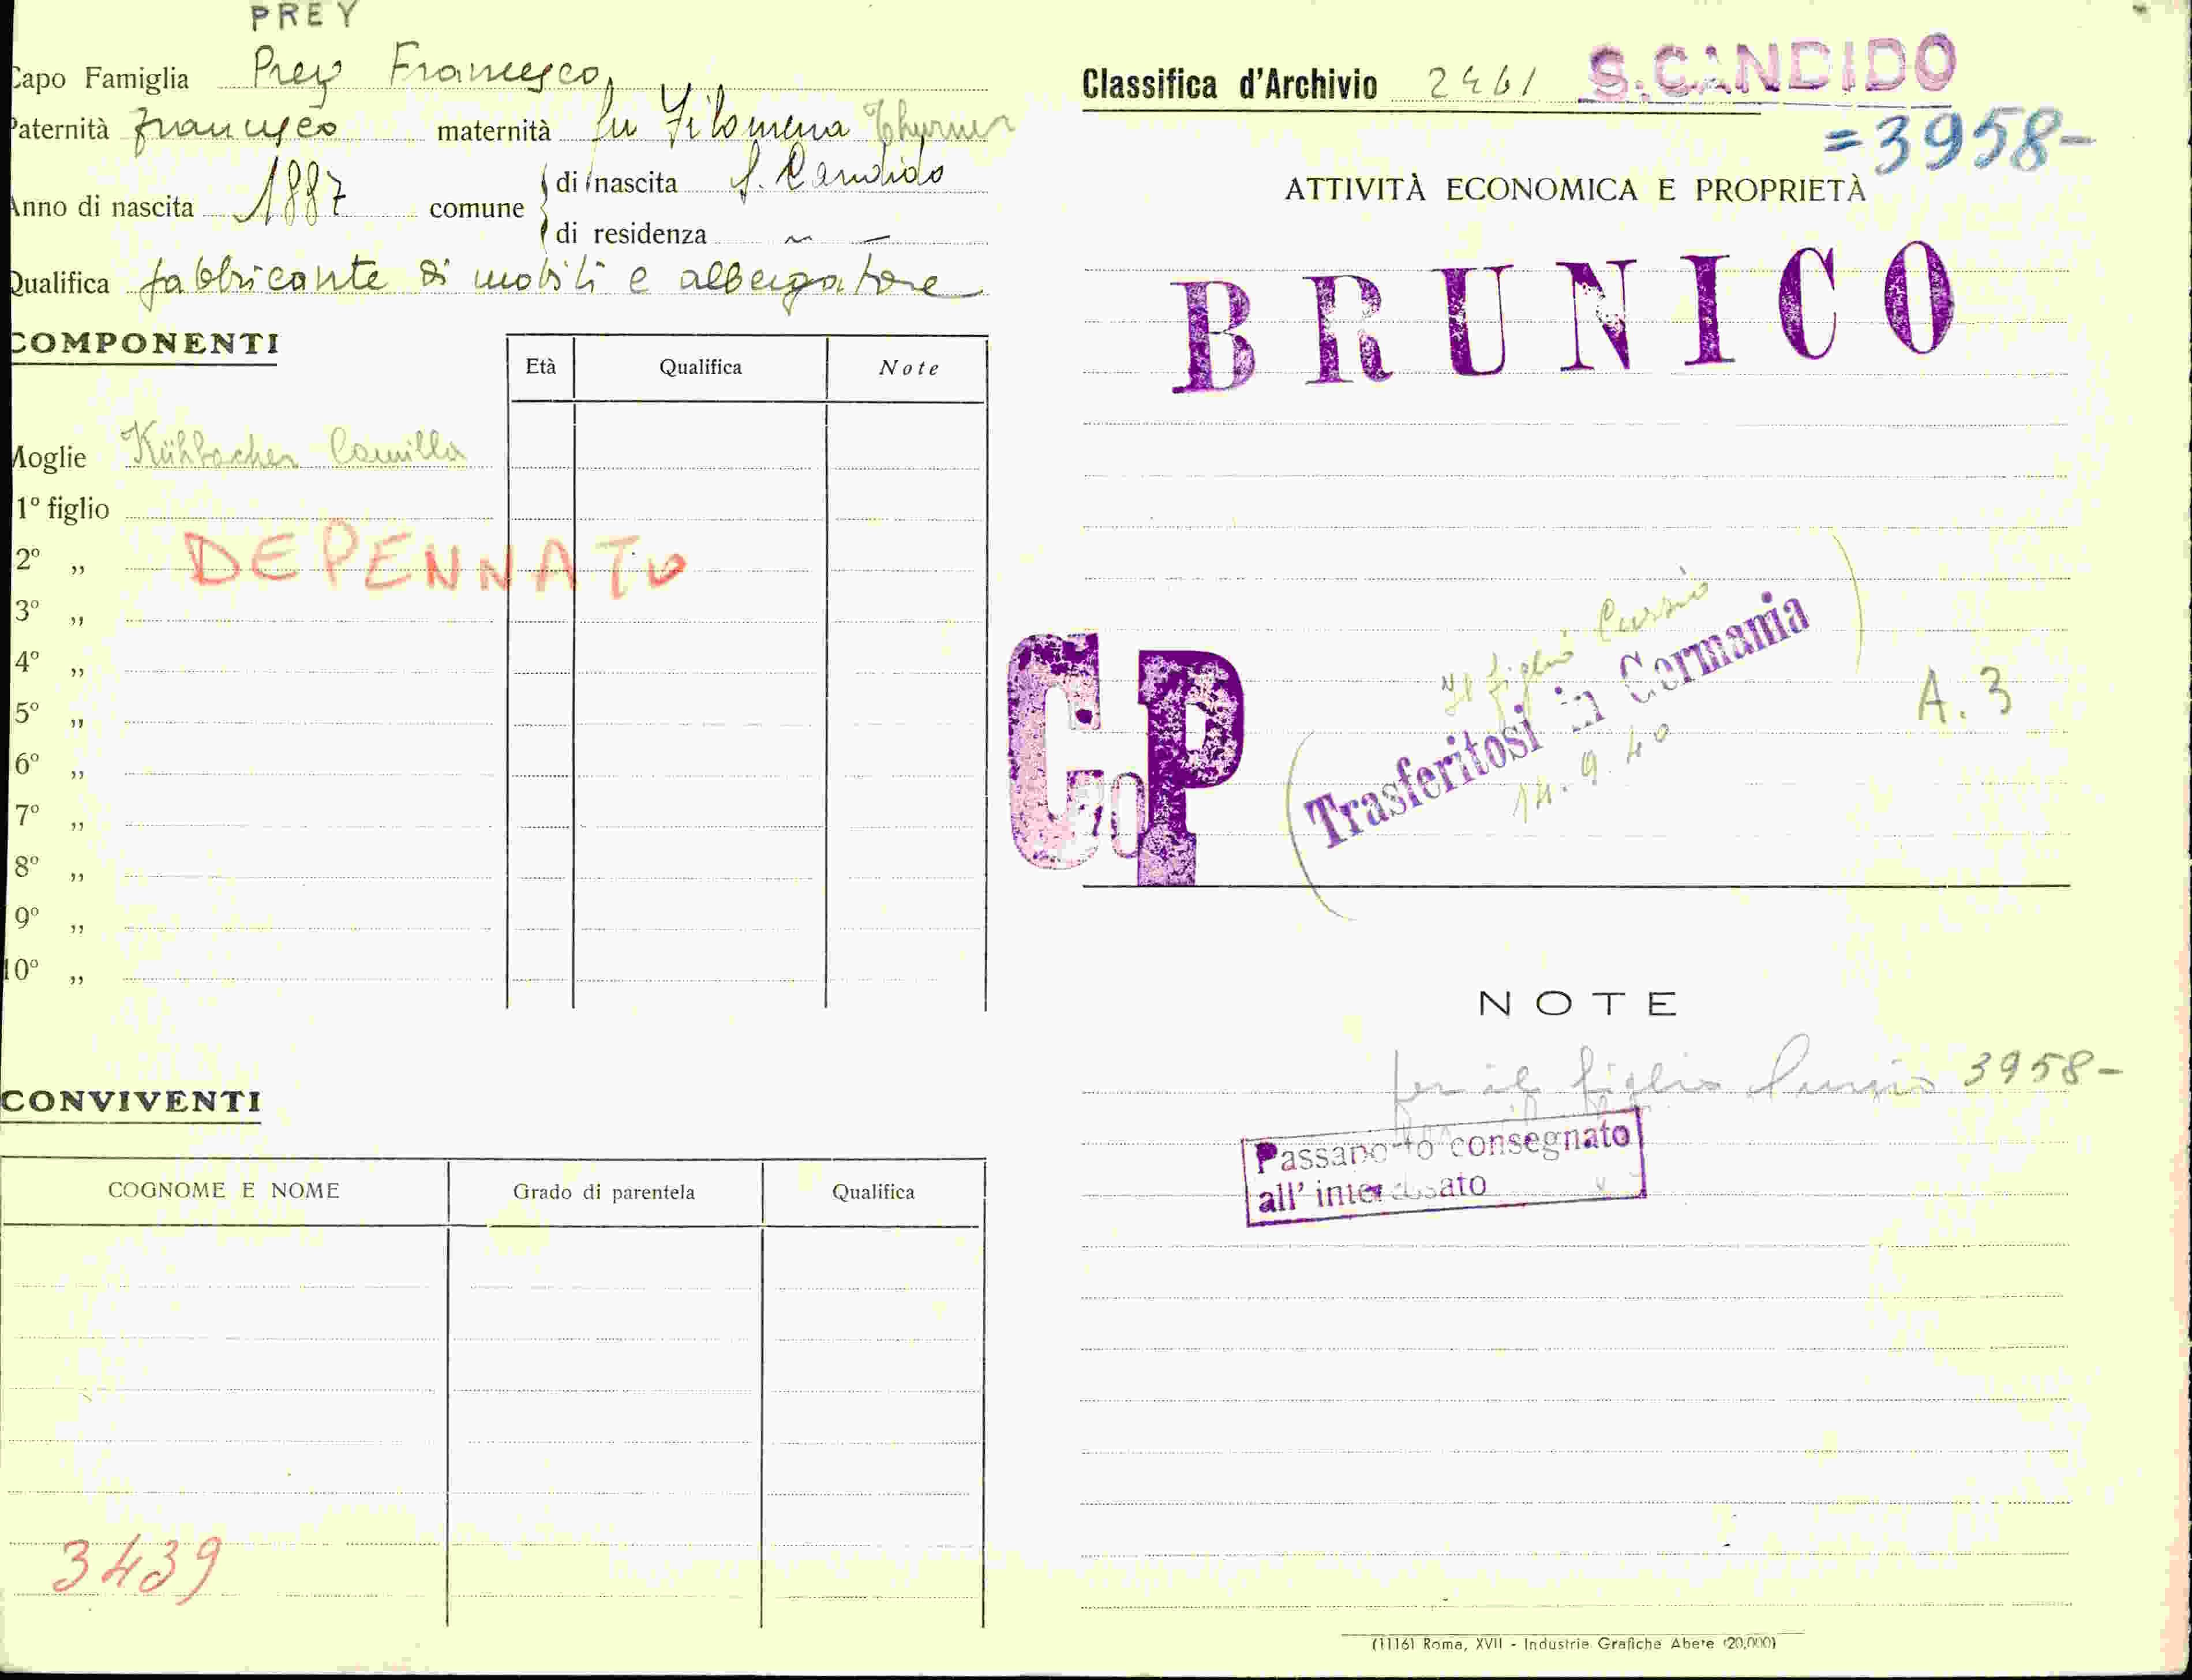 PREY
Capo Famiglia Prey Francesco
Paternità Francesco maternità fu Filomena Thurner
Anno di nascita 1887 comune di nascita S. Candido
di residenza
Qualifica fabbricante di mobili e albergatore
COMPONENTI
Età Qualifica Note
Moglie Kühbacher Camilla
1º figlio
2º „ DEPENNATO
3º „
4º „
5º „
6º „
7º „
8º „
9º „
10º „
CONVIVENTI
COGNOME E NOME Grado di parentela Qualifica
3439
Classifica d'Archivio 2461 S. CANDIDO
=3958-
ATTIVITÀ ECONOMICA E PROPRIETÀ
BRUNICO
Il figlio
Trasferitosi in Germania
14.9.40
A.3
NOTE
per il figlio 3958-
Passaporto consegnato
all' interessato
(1116) Roma, XVII - Industrie Grafiche Abete (20,000)